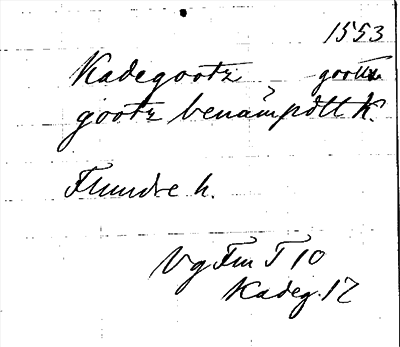 1553
Kadegootz goottz
gootz benämpdtt K.
Flundre h.
Vg Fm T 10
Kadeg. 12